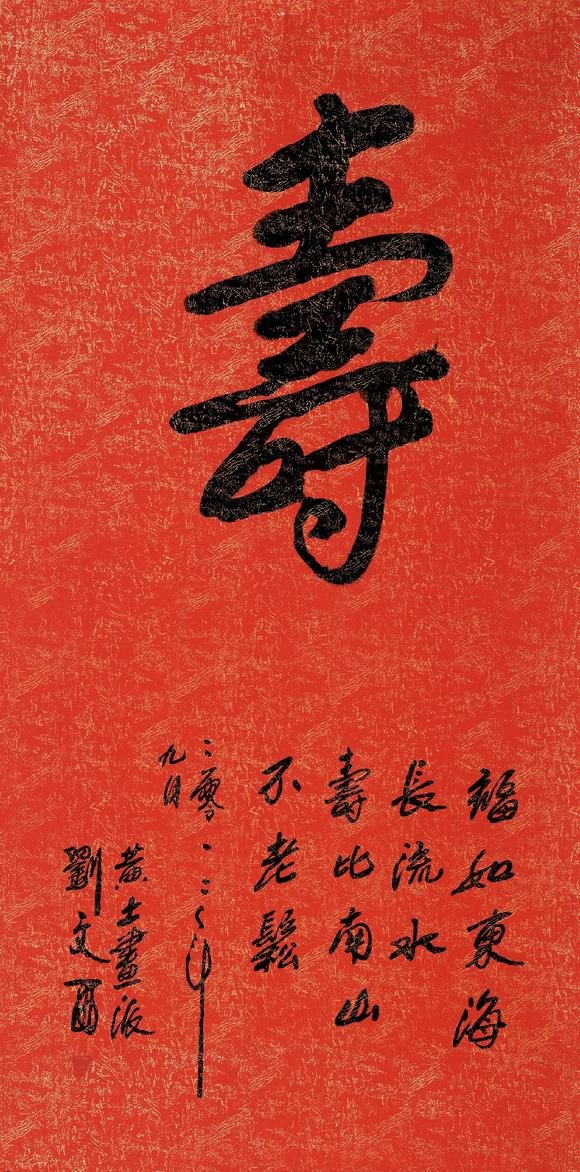 壽
福如東海
長流水
壽比南山
不老鬆
二零一二年
九月
黄土畫派
劉文西